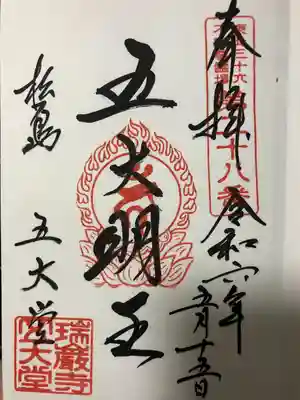 奉拝
令和六年
五月十五日
五大明王
松島
五大堂
瑞巌寺
五大堂